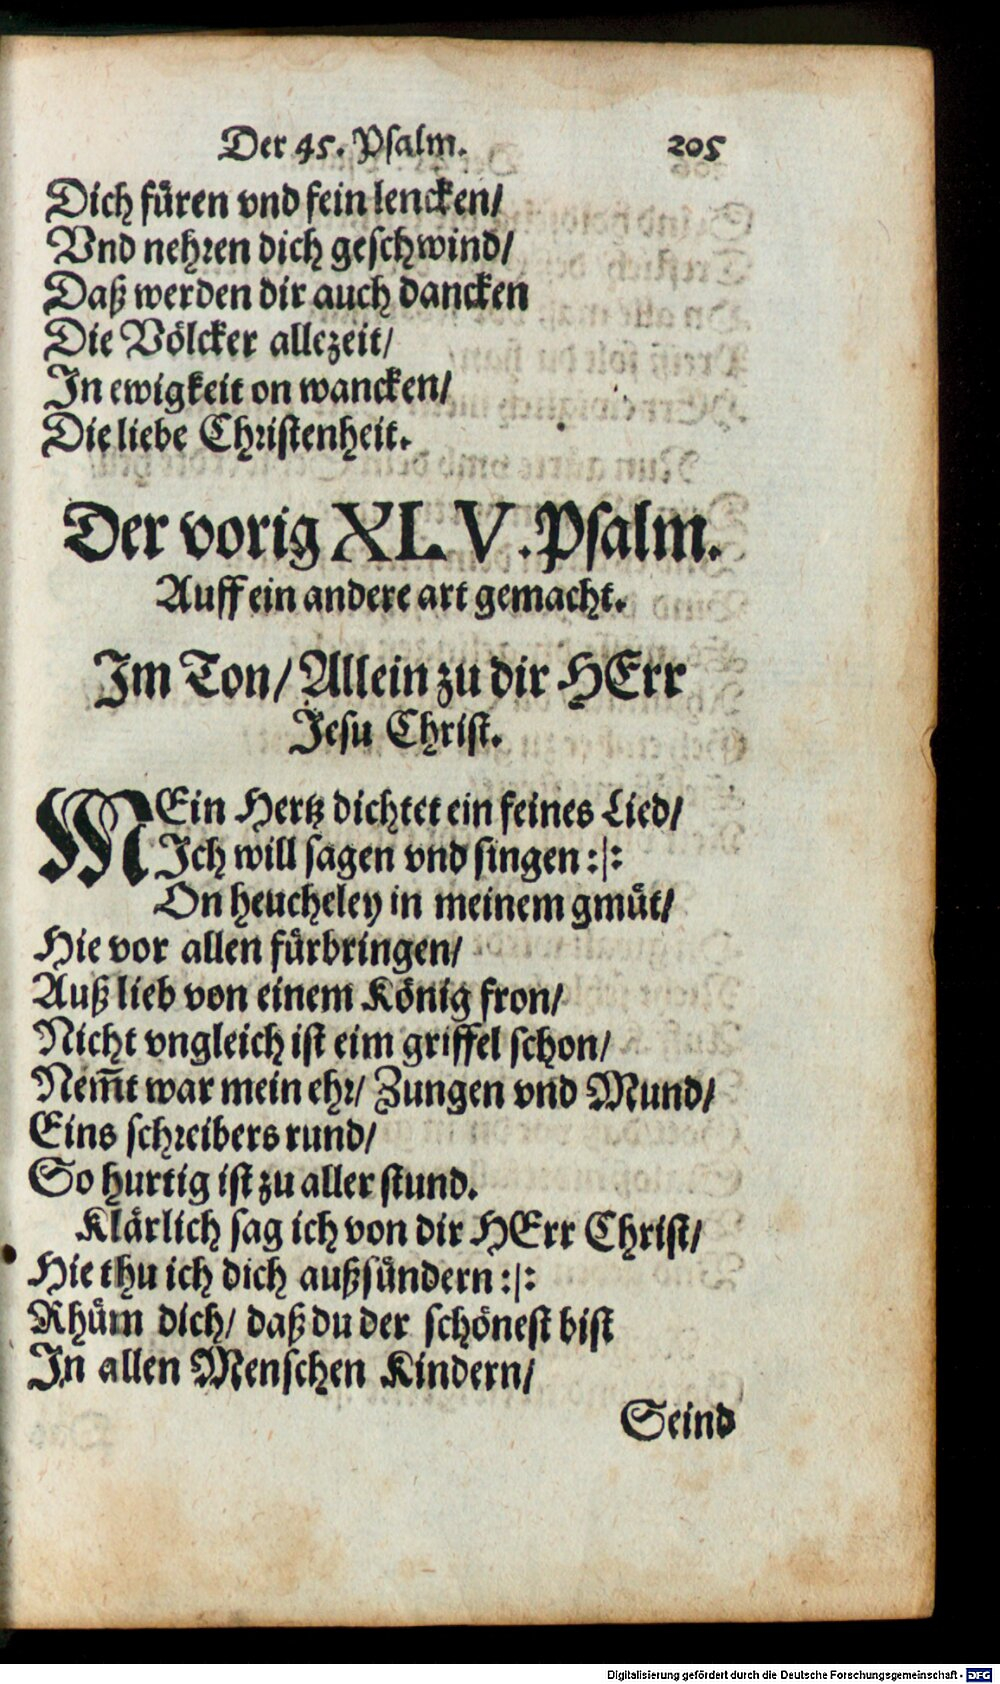 Der 45. Psalm. 205
Dich fuͤren vnd fein lencken/
Vnd nehren dich geschwind/
Daß werden dir auch dancken
Die Voͤlcker allezeit/
In ewigkeit on wancken/
Die liebe Christenheit.
Der vorig XLV. Psalm.
Auff ein andere art gemacht.
Im Ton/ Allein zu dir HErr
Jesu Christ.
MEin Hertz dichtet ein feines Lied/
Ich will sagen vnd singen :|:
On heucheley in meinem gmuͤt/
Hie vor allen fuͤrbringen/
Auß lieb von einem Koͤnig fron/
Nicht vngleich ist eim griffel schon/
Nem̃t war mein ehr/ Zungen vnd Mund/
Eins schreibers rund/
So hurtig ist zu aller stund.
Klaͤrlich sag ich von dir HErr Christ/
Hie thu ich dich außsuͤndern :|:
Rhuͤm dich/ daß du der schoͤnest bist
In allen Menschen Kindern/
Seind
Digitalisierung gefördert durch die Deutsche Forschungsgemeinschaft - DFG